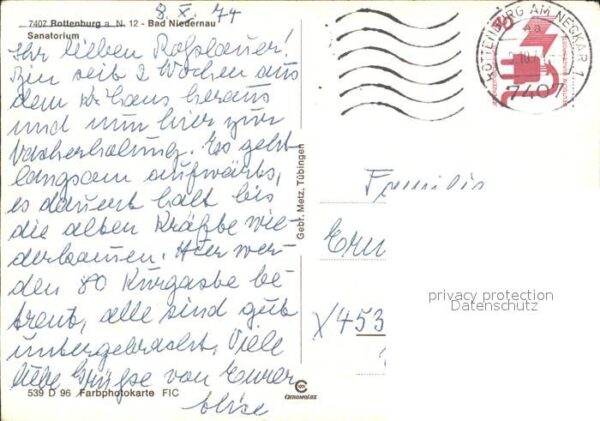 8. X. 74
7407 Rottenburg a. N. 12 - Bad Niedernau
Sanatorium
Ihr lieben Roßlauer!
Bin seit 2 Wochen aus
dem Kr.haus heraus
und nun hier zur
Nacherholung. Es geht
langsam aufwärts,
es dauert halt bis
die alten Kräfte wie-
derkommen. Hier wer-
den 80 Kurgäste be-
treut, alle sind gut
untergebracht. Viele
liebe Grüße von Eurer
Elise
539 D 96 Farbphotokarte FIC
Gebr. Metz, Tübingen
CHROMOLUX
ROTTENBURG AM NECKAR 1
7407
30
Familie
X453
privacy protection
Datenschutz